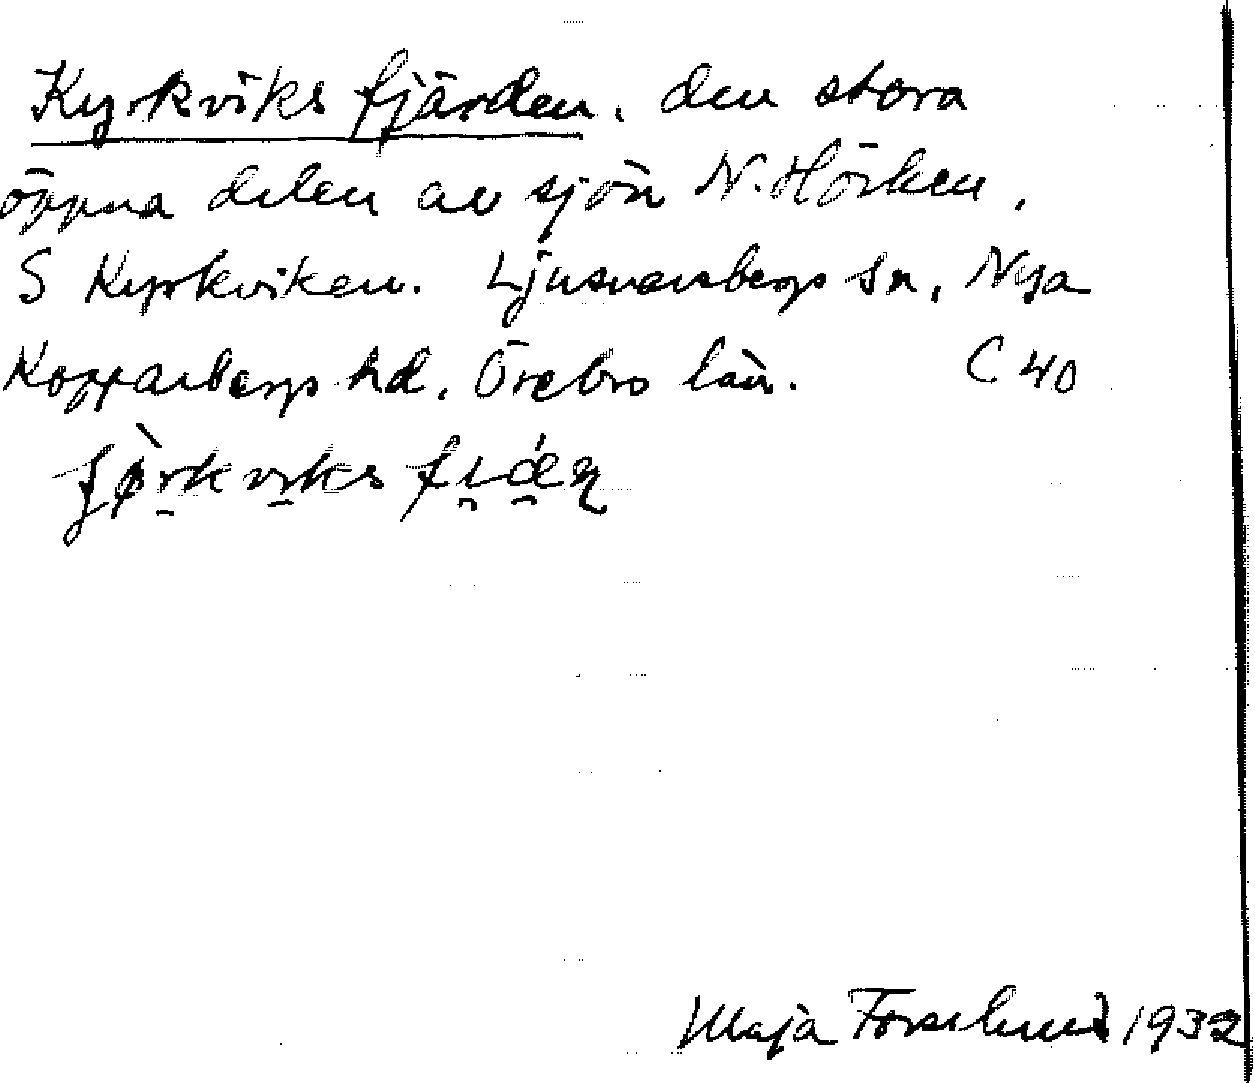 Kyrkviks fjärden, den stora
öppna delen av sjön N. Hörken,
S Kyrkviken. Ljusnarsbergs sn, Nya
Kopparbergs hd, Örebro län. C 40
Maja Forslund 1932